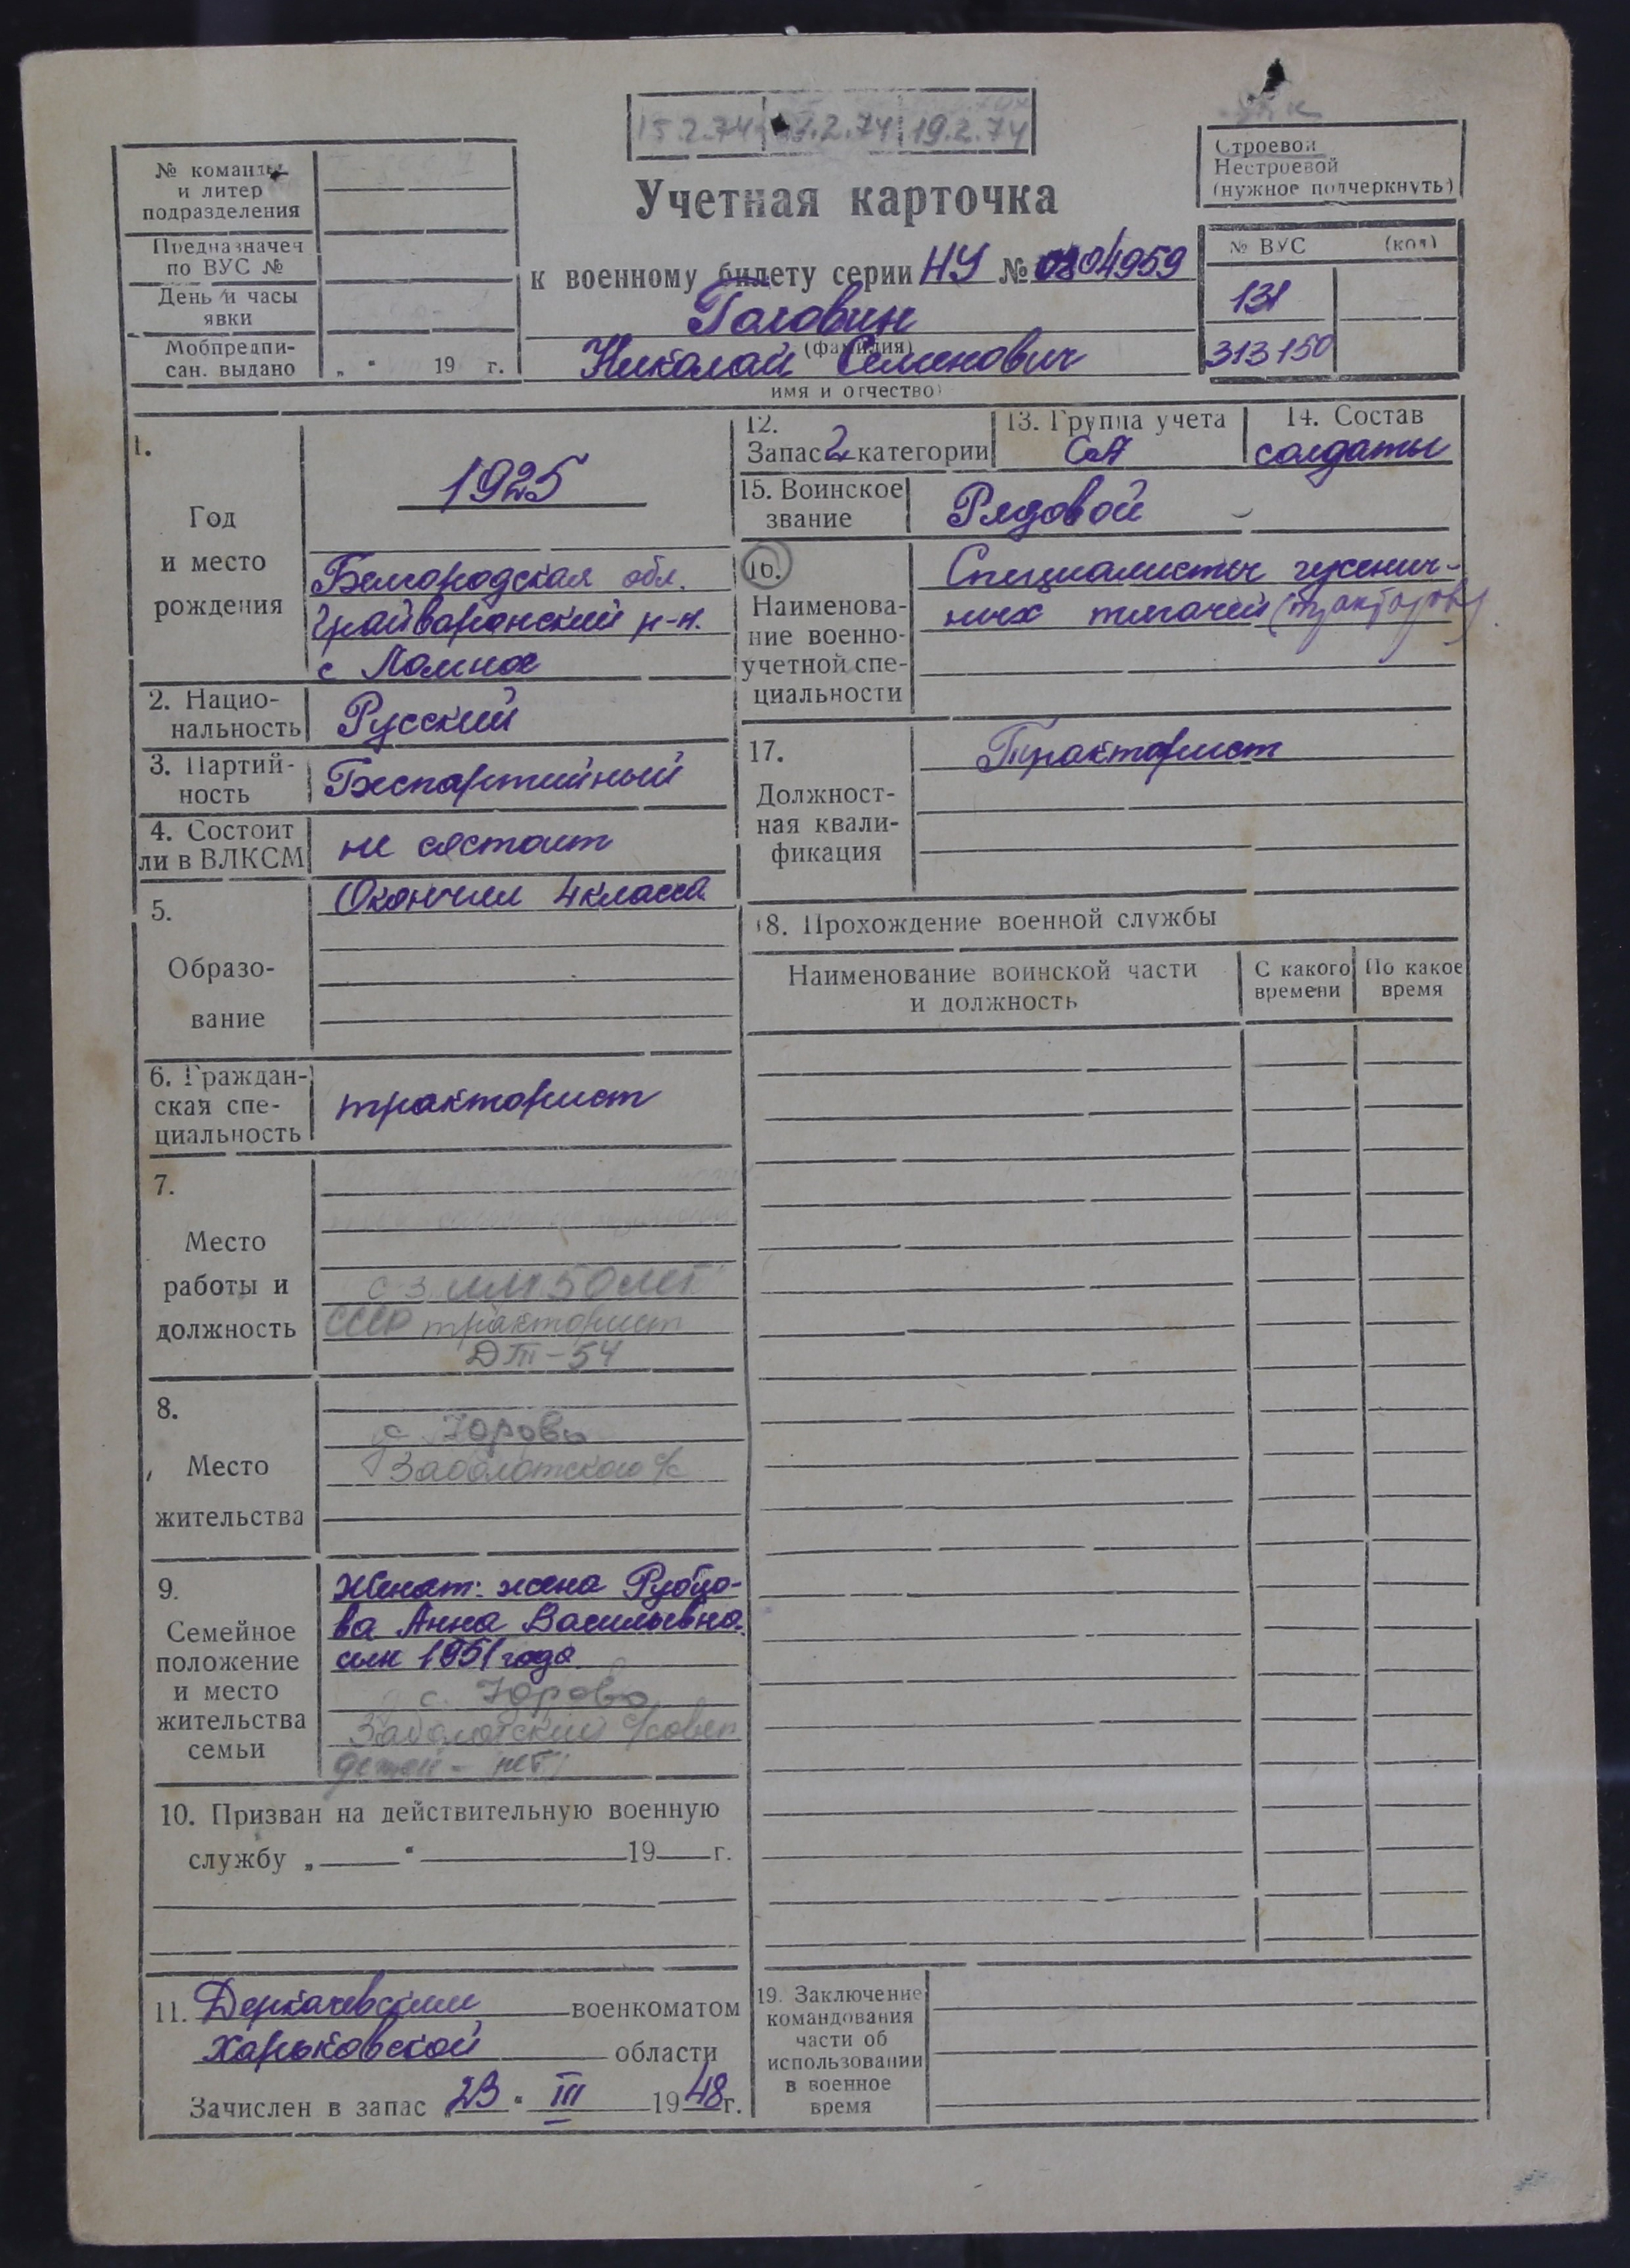 15.2.74 .2.74 19.2.74
№ команды
и литер
подразделения
Предназначен
по ВУС №
День и часы
явки
Мобпредпи-
сан. выдано „ " 19 г.
Учетная карточка
к военному билету серии НУ № 0804959
Головин
(фамилия)
Николай Семенович
имя и отчество)
Строевой
Нестроевой
(нужное подчеркнуть)
№ ВУС (код)
131
313150
1.
Год
и место
рождения
1925
Белгородская обл.
Грайворонский р-н.
с Ломное
2. Нацио-
нальность Русский
3. Партий-
ность Беспартийный
4. Состоит
ли в ВЛКСМ не состоит
5.
Образо-
вание
Окончил 4 класса
6. Граждан-
ская спе-
циальность
тракторист
7.
Место
работы и
должность
с з им 50 лет
СССР тракторист
ДТ-54
8.
Место
жительства
с Юрово
Заболотского с/с
9.
Семейное
положение
и место
жительства
семьи
Женат: жена Рубцо-
ва Анна Васильевна.
сын 1951 года
с. Юрово
Заболотский с/совет
детей - нет
10. Призван на действительную военную
службу „ " 19 г.
11. Деркачевским военкоматом
Харьковской области
Зачислен в запас 23 " III 1948 г.
12.
Запас 2 категории
13. Группа учета
СА
14. Состав
солдаты
15. Воинское
звание
Рядовой
16.
Наименова-
ние военно-
учетной спе-
циальности
Специалисты гусенич-
ных тягачей (тракторов)
17.
Должност-
ная квали-
фикация
Тракторист
18. Прохождение военной службы
Наименование воинской части
и должность
С какого
времени
По какое
время
19. Заключение
командования
части об
использовании
в военное
время